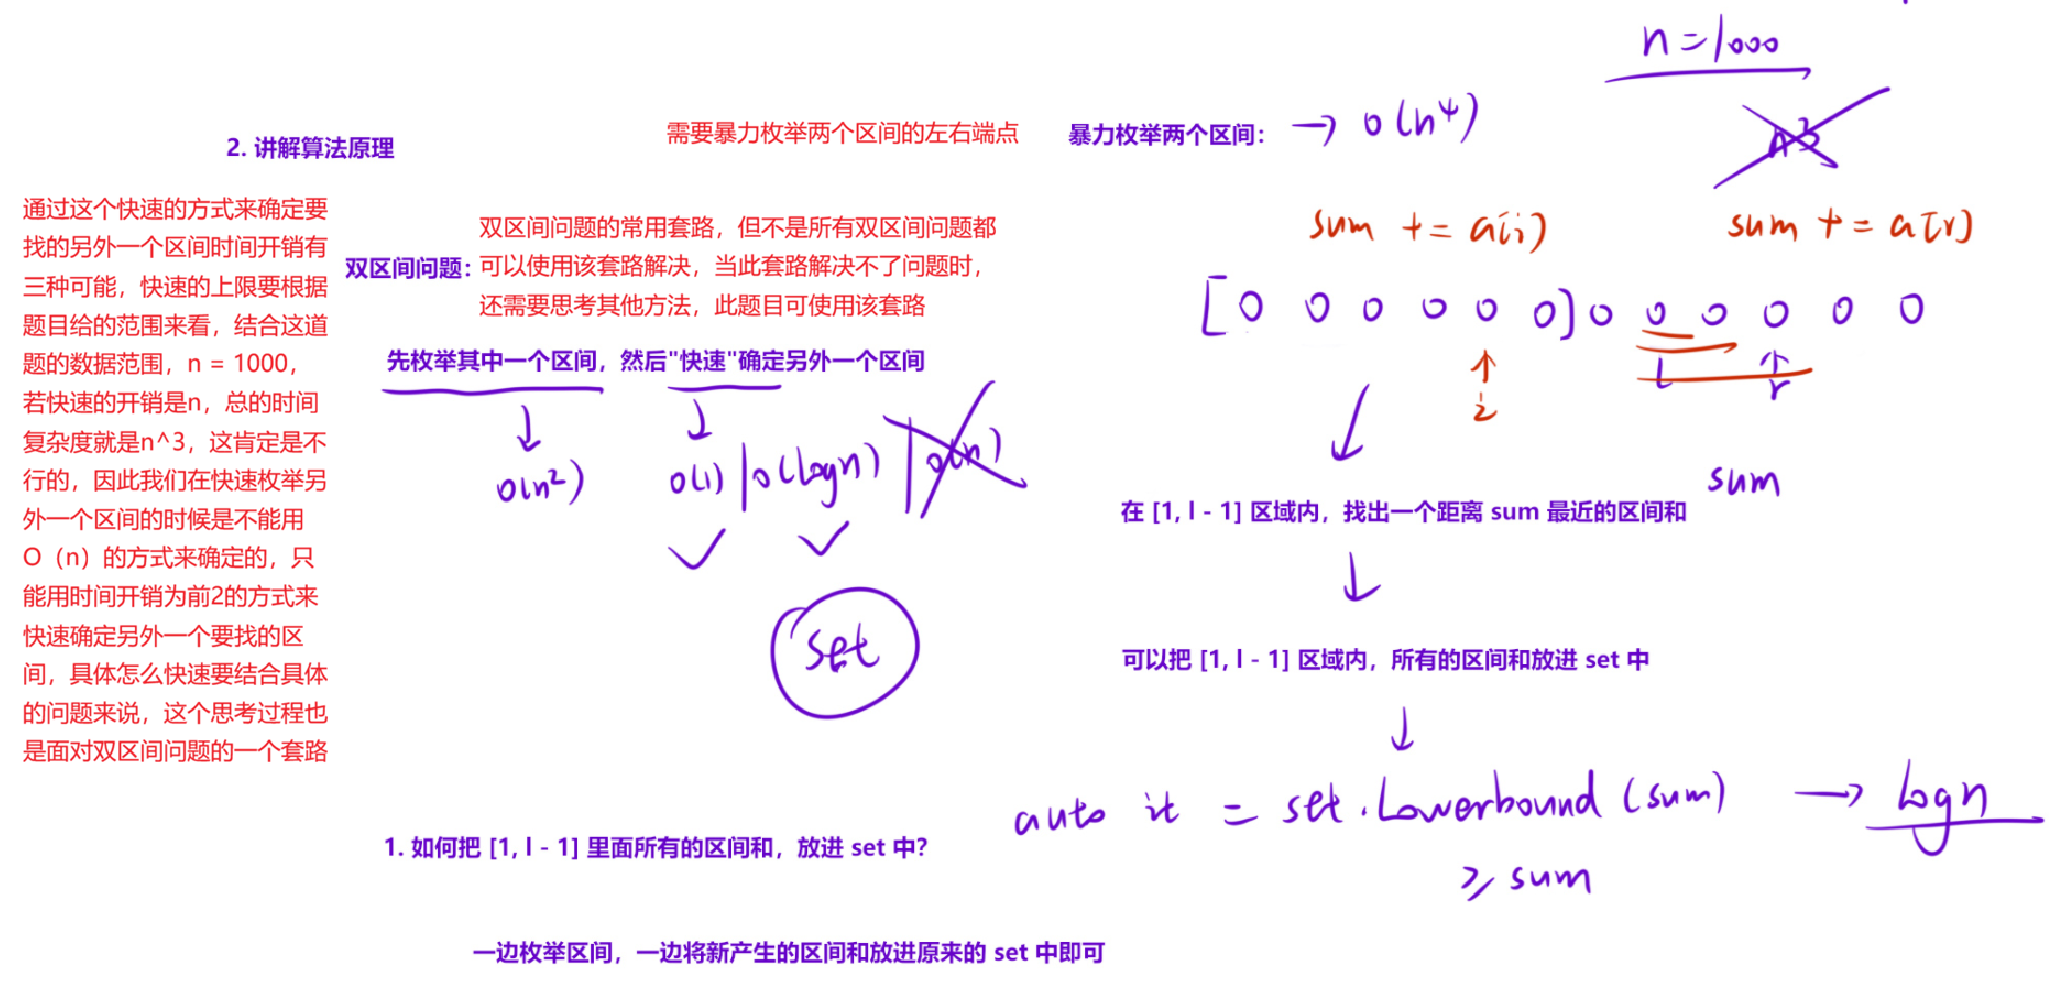 n=1000
需要暴力枚举两个区间的左右端点
暴力枚举两个区间： → O(n^4)
n^3
2. 讲解算法原理
通过这个快速的方式来确定要
找的另外一个区间时间开销有
三种可能，快速的上限要根据
题目给的范围来看，结合这道
题的数据范围，n = 1000，
若快速的开销是n，总的时间
复杂度就是n^3，这肯定是不
行的，因此我们在快速枚举另
外一个区间的时候是不能用
O（n）的方式来确定的，只
能用时间开销为前2的方式来
快速确定另外一个要找的区
间，具体怎么快速要结合具体
的问题来说，这个思考过程也
是面对双区间问题的一个套路
双区间问题：
双区间问题的常用套路，但不是所有双区间问题都
可以使用该套路解决，当此套路解决不了问题时，
还需要思考其他方法，此题目可使用该套路
先枚举其中一个区间，然后"快速"确定另外一个区间
O(n²)
O(1) | O(logn) | O(n)
set
sum += a[i]
sum += a[r]
[0 0 0 0 0 0] 0 0 0 0 0 0
i
l
r
sum
在 [1, l - 1] 区域内，找出一个距离 sum 最近的区间和
可以把 [1, l - 1] 区域内，所有的区间和放进 set 中
auto it = set.Lowerbound(sum) → logn
≥ sum
1. 如何把 [1, l - 1] 里面所有的区间和，放进 set 中？
一边枚举区间，一边将新产生的区间和放进原来的 set 中即可